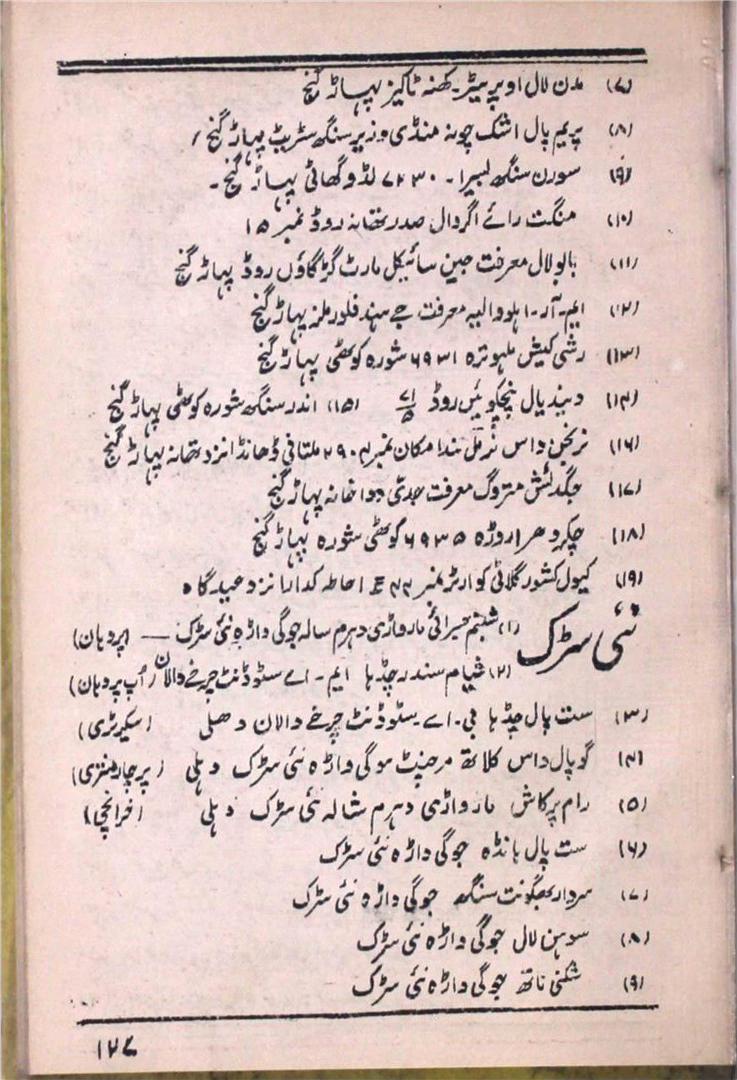 (۷) مدن لال اوپریٹر۔ کھنہ ٹاکیز پہاڑ گنج
(۸) پریم پال اشک چونہ منڈی وزیر سنگھ سٹریٹ پہاڑ گنج /
(۹) سورن سنگھ لمبیرا۔ ۷۲۳۰ لڈو گھاٹی پہاڑ گنج۔
(۱۰) منگت رائے اگروال صدر تھانہ روڈ نمبر ۱۵
(۱۱) بابو لال معرفت جین سائیکل مارٹ گڑگاؤں روڈ پہاڑ گنج
(۱۲) ایم۔ آر۔ اہلووالیہ معرفت جے ہند فلور ملز پہاڑ گنج
(۱۳) رشی کیش ملہوترہ ۶۹۳۱ شورہ کوٹھی پہاڑ گنج
(۱۴) دیندیال پنچکوئیں روڈ ۷۱/۵ (۱۵) اندر سنگھ شورہ کوٹھی پہاڑ گنج
(۱۶) نرنجن داس نرمل نندا مکان نمبر ۲۹۰۴ ملتانی ڈھانڈا نزد تھانہ پہاڑ گنج
(۱۷) جگدیش متروک معرفت جدی دواخانہ پہاڑ گنج
(۱۸) چکردھر اروڑہ ۶۹۳۵ کوٹھی شورہ پہاڑ گنج
(۱۹) کیول کشور گلاٹی کوارٹر نمبر ۴۴ E احاطہ کدارا نزد عیدگاہ
نئی سڑک (۱) شبنم مارواڑی دہرم سالہ جوگی واڑہ نئی سڑک — (پردہان)
(۲) شیام سندر چڈہا ایم۔ اے سٹوڈنٹ چرخے والان (اُپ پردہان)
(۳) ست پال چڈہا بی۔ اے سٹوڈنٹ چرخے والان دھلی (سکیرٹری)
(۴) گوپال داس کلاتھ مرچنٹ موگی واڑہ نئی سڑک دہلی (پرچار منتری)
(۵) رام پرکاش مارواڑی دہرم شالہ نئی سڑک دہلی (خزانچی)
(۶) ست پال ہانڈہ جوگی واڑہ نئی سڑک
(۷) سردار بھگونت سنگھ جوگی واڑہ نئی سڑک
(۸) سوہن لال جوگی واڑہ نئی سڑک
(۹) شکنی ناتھ جوگی واڑہ نئی سڑک
۱۲۷